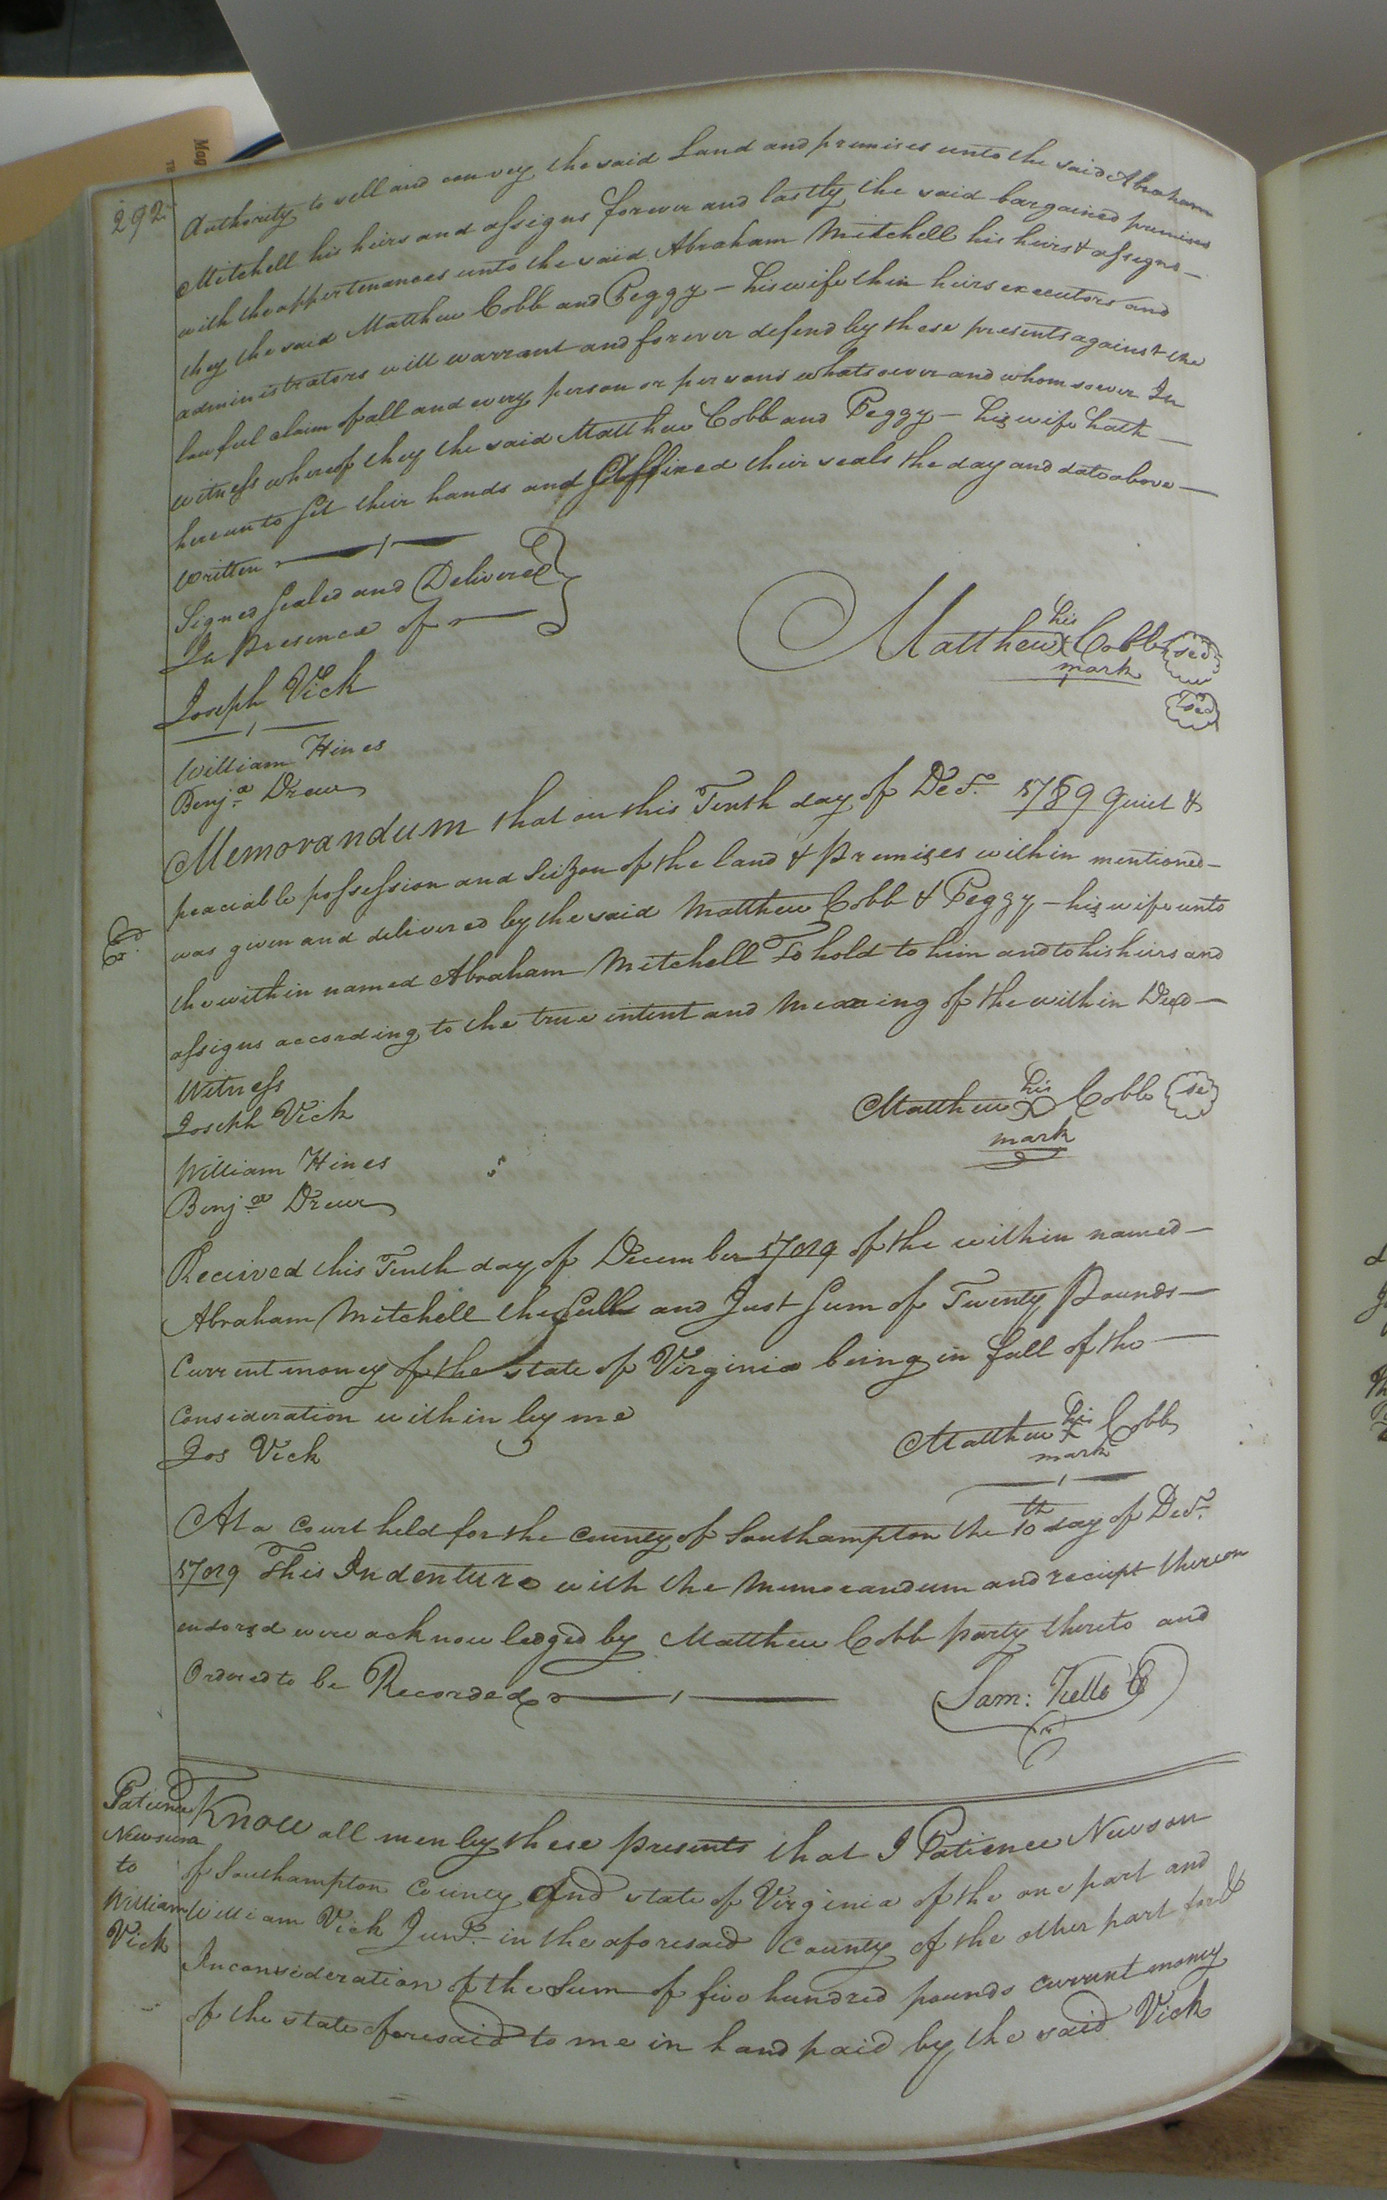 292
Authority to sell and convey the said Land and premises unto the said Abraham
Mitchell his heirs and assigns forever and lastly the said bargained premises
with the appertenances unto the said Abraham Mitchell his heirs & assigns —
they the said Matthew Cobb and Peggy — his wife thin heirs executors and
administrators will warrant and forever defend by these presents against the
lawful claim of all and every person or persons whatsoever and whomsoever In
witness whereof they the said Matthew Cobb and Peggy — his wife hath —
hereunto set their hands and Affixed their seals the day and date above —
written
Signed Sealed and Delivered
In Presence of
Joseph Vick
William Hines
Benja Drew
his
Matthew X Cobb sed
mark
sed
Memorandum that on this Tenth day of Decr. 1789 Quiet &
peaciable possession and Seizon of the land & Premises within mentioned —
was given and delivered by the said Matthew Cobb & Peggy — his wife unto
Ex.
the within named Abraham Mitchell To hold to him and to his heirs and
assigns according to the true intent and Meaning of the within Deed —
Witness
Joseph Vick
William Hines
Benja Drew
his
Matthew X Cobb se
mark
Received this Tenth day of December 1789 of the within named —
Abraham Mitchell the full and Just Sum of Twenty Pounds —
Current money of the State of Virginia being in full of the —
Consideration within by me
Jos Vick
his
Matthew X Cobb
mark
At a Court held for the County of Southampton the 10th day of Decr.
1789 This Indenture with the Memorandum and reciept thereon
endorsd were acknowledged by Matthew Cobb party thereto and
Ordred to be Recorded
Sam: Kello C
Patience
Newsum
to
William
Vick
Know all men by these presents that I Patience Newson
of Southampton County and state of Virginia of the one part and
William Vick Junr. in the aforesaid County of the other part for &
In consideration of the Sum of five hundred pounds current money
of the state aforesaid to me in hand paid by the said Vick